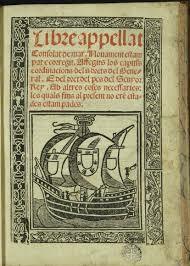 Libre appellat
Consolat de mar. Nouament estam
pat e corregit. Affegits los capitols
e ordinacions dels drets del Gene
ral. E del dret del pes del Senyor
Rey. Ab altres coses necessaries:
les quals fins al present no erẽ eita
des estampades.